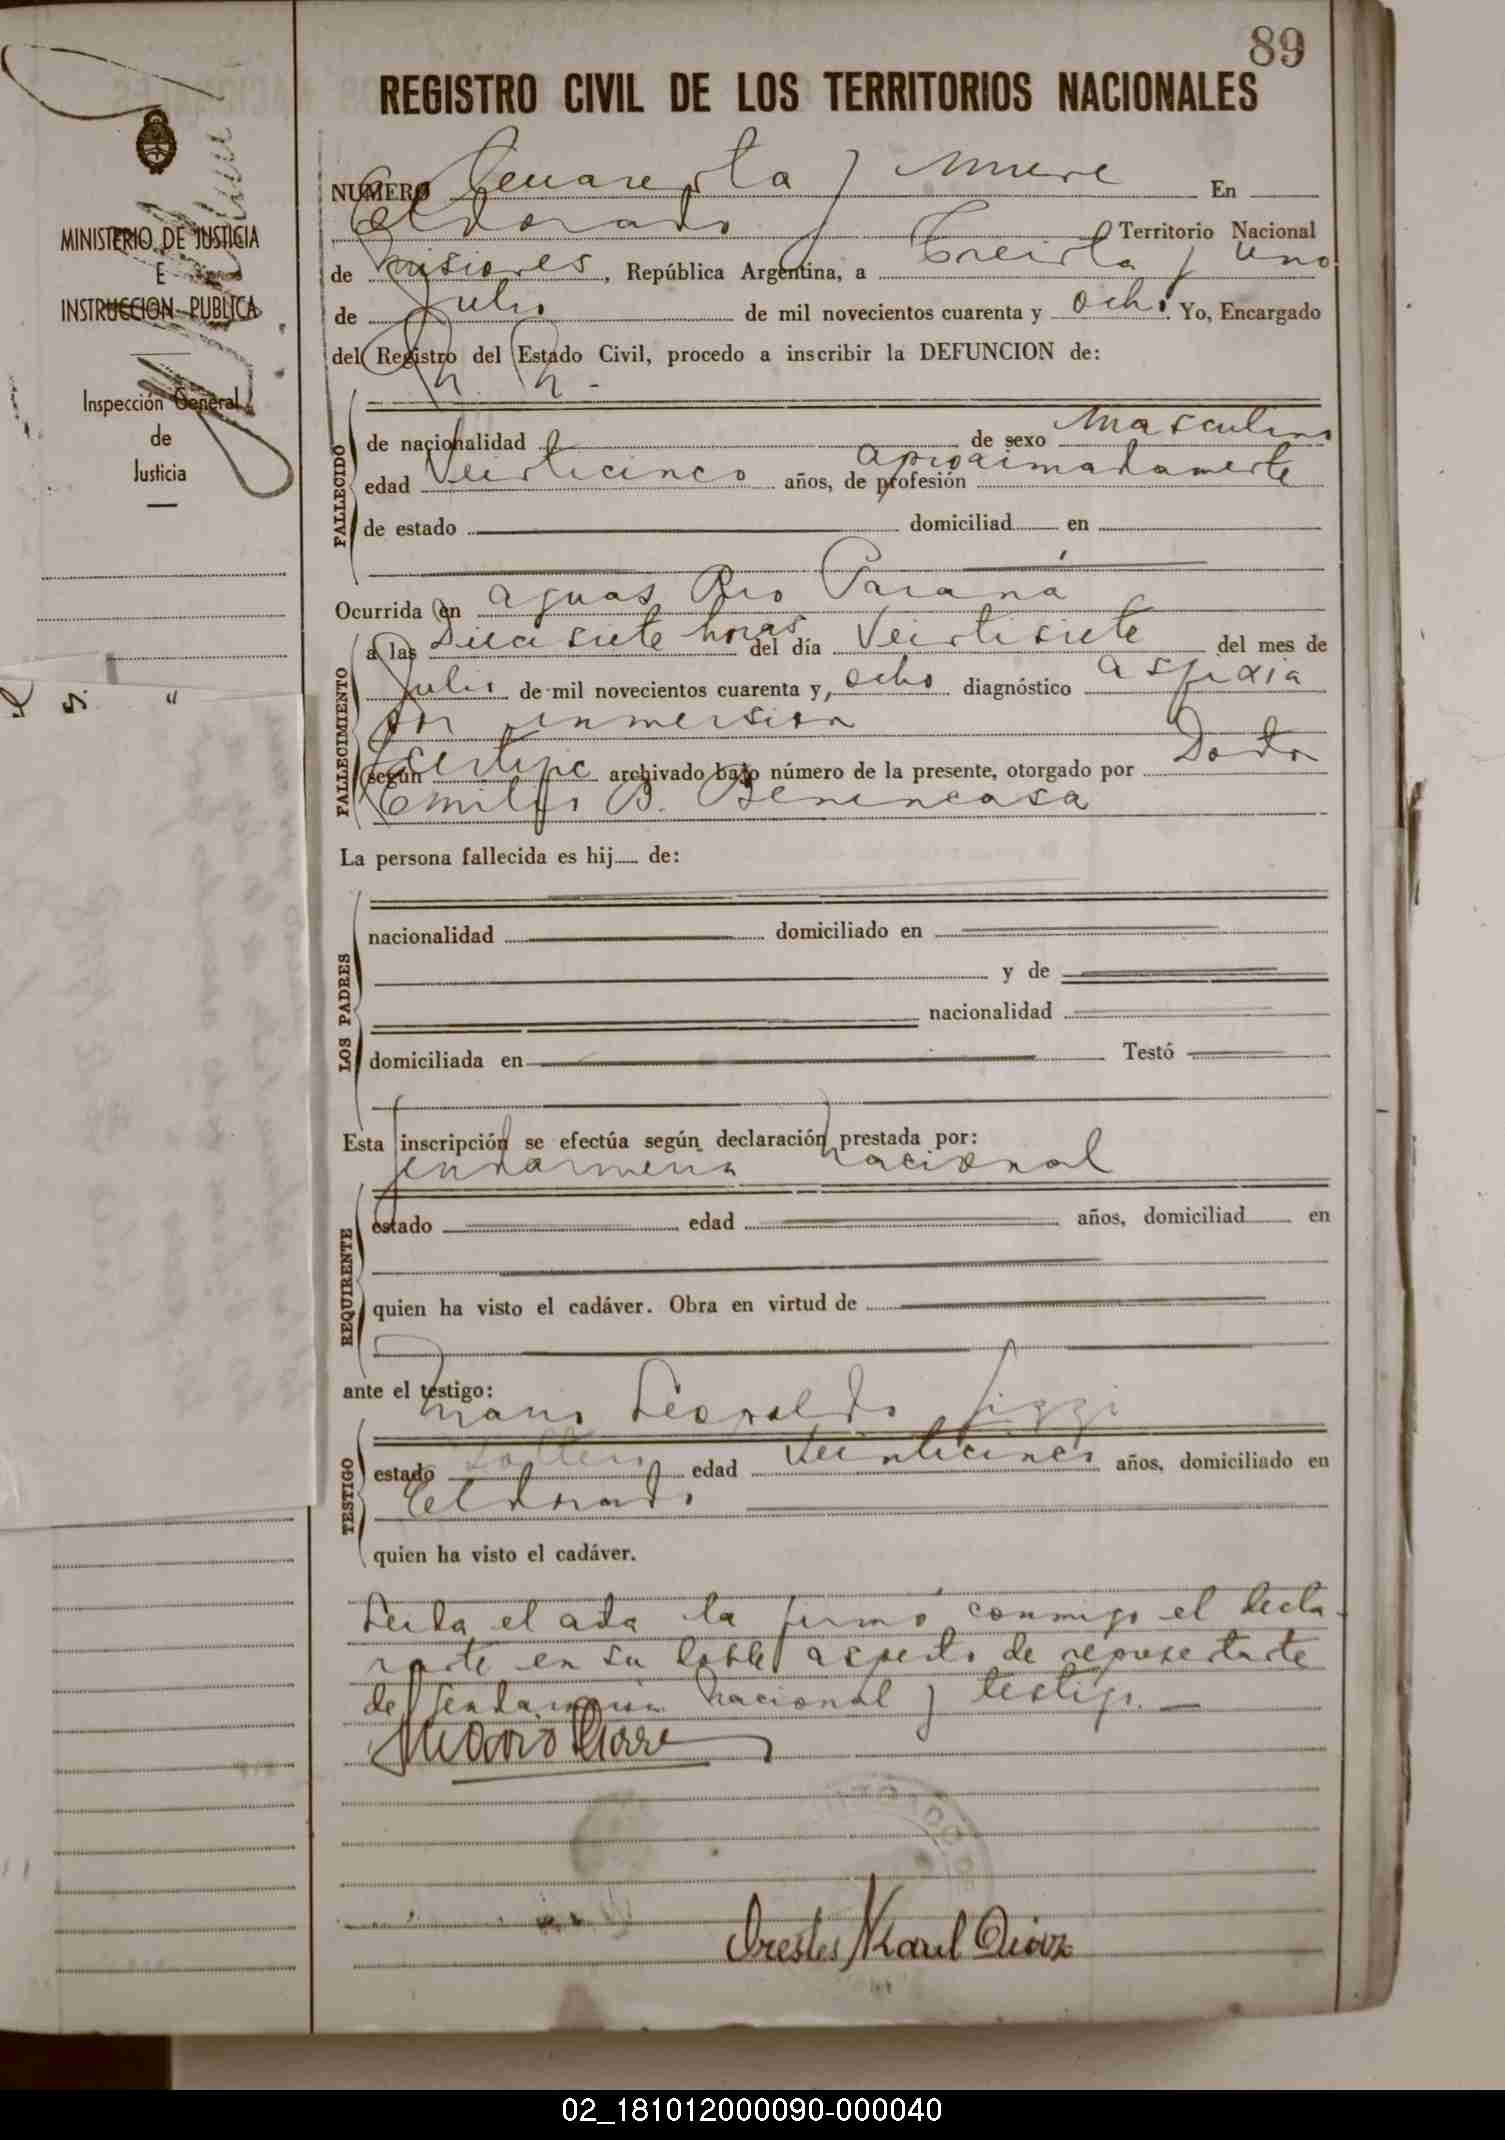 89
REGISTRO CIVIL DE LOS TERRITORIOS NACIONALES
MINISTERIO DE JUSTICIA
E
INSTRUCCION PUBLICA
Inspección General
de
Justicia
NUMERO Cuarenta y nueve En
Eldorado Territorio Nacional
de Misiones, República Argentina, a treinta y uno
de Julio de mil novecientos cuarenta y ocho. Yo, Encargado
del Registro del Estado Civil, procedo a inscribir la DEFUNCION de:
N. N. -
FALLECIDO
de nacionalidad de sexo masculino
edad Veinticinco años, de profesión aproximadamente
de estado domiciliad en
Ocurrida en aguas Rio Paraná
FALLECIMIENTO
a las Diecisiete horas del día Veintisiete del mes de
Julio de mil novecientos cuarenta y, ocho diagnóstico asfixia
por inmersion
según archivado bajo número de la presente, otorgado por Doctor
Emilio B. Benincasa
La persona fallecida es hij de:
LOS PADRES
nacionalidad domiciliado en
y de
nacionalidad
domiciliada en Testó
Esta inscripción se efectúa según declaración prestada por:
Jendarmeria nacional
REQUIRENTE
estado edad años, domiciliad en
quien ha visto el cadáver. Obra en virtud de
ante el testigo:
Mario Leopoldo
TESTIGO
estado Soltero edad Veinticinco años, domiciliado en
Eldorado
quien ha visto el cadáver.
Leida el acta la firmó conmigo el decla-
rante en su doble aspecto de representante
de Jendarmeria nacional y testigo. —
Orestes Raul Diaz
02_181012000090-000040